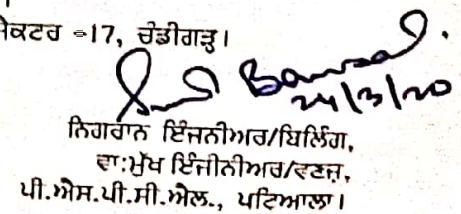 ਸੈਕਟਰ -17, ਚੰਡੀਗੜ੍ਹ।
Bansal
24/3/20
ਨਿਗਰਾਨ ਇੰਜਨੀਅਰ/ਬਿਲਿੰਗ,
ਵਾ:ਮੁੱਖ ਇੰਜੀਨੀਅਰ/ਵਣਜ਼,
ਪੀ.ਐਸ.ਪੀ.ਸੀ.ਐਲ., ਪਟਿਆਲਾ।